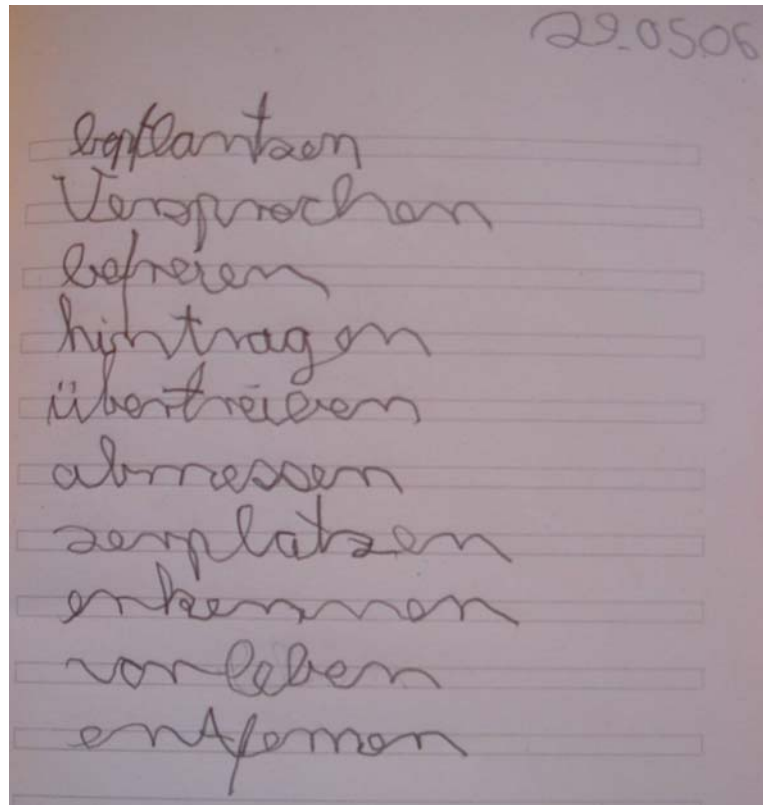 29.05.06
bepflantzen
Versprechen
befreien
hintragen
übertreiben
abmessen
zerplatzen
erkennen
vorleben
entfernen